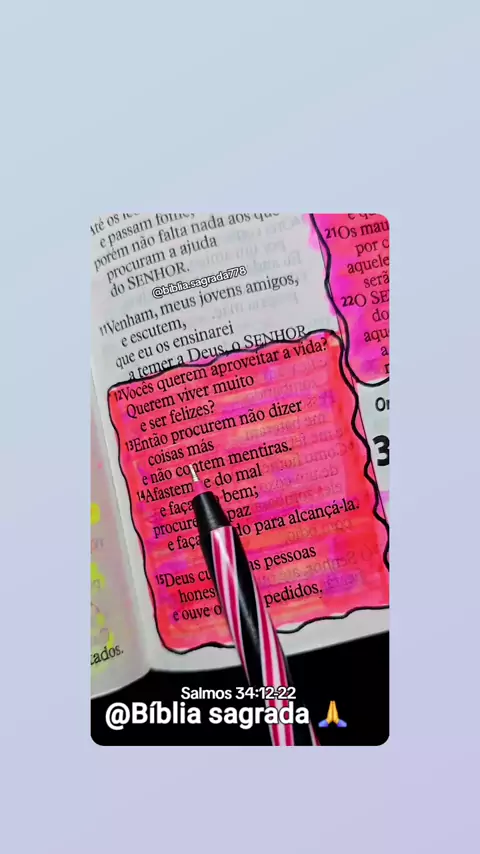 Até os
e passam fome,
porém não falta nada aos que
procuram a ajuda
do SENHOR.
@biblia.sagrada778
11Venham, meus jovens amigos,
e escutem,
que eu os ensinarei
a temer a Deus, o SENHOR
12Vocês querem aproveitar a vida?
Querem viver muito
e ser felizes?
13Então procurem não dizer
coisas más
e não contem mentiras.
14Afastem e do mal
e faça bem;
procure paz
e faça do para alcançá-la.
15Deus cu as pessoas
hones
e ouve o pedidos.
cados.
21Os mau
por c
aquele
serã
22O SE
do
aqu
On
3
Salmos 34:12-22
@Bíblia sagrada 🙏